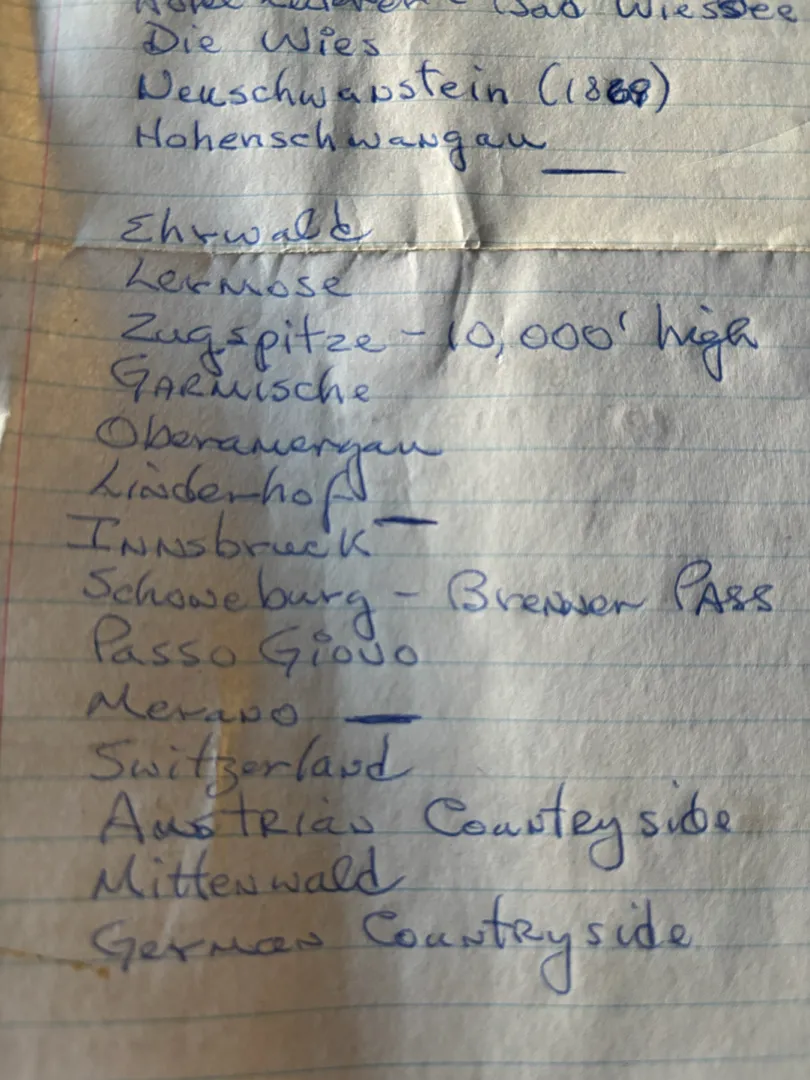 Bad Wiessee
Die Wies
Neuschwanstein (1869)
Hohenschwangau
Ehrwald
Lermose
Zugspitze - 10,000' high
GARMische
Oberamergau
Linderhof
INNsbruck
Schoneburg - Brenner PASS
Passo Giovo
Merano
Switzerland
AusTRian CounTRyside
Mittenwald
German CountRyside